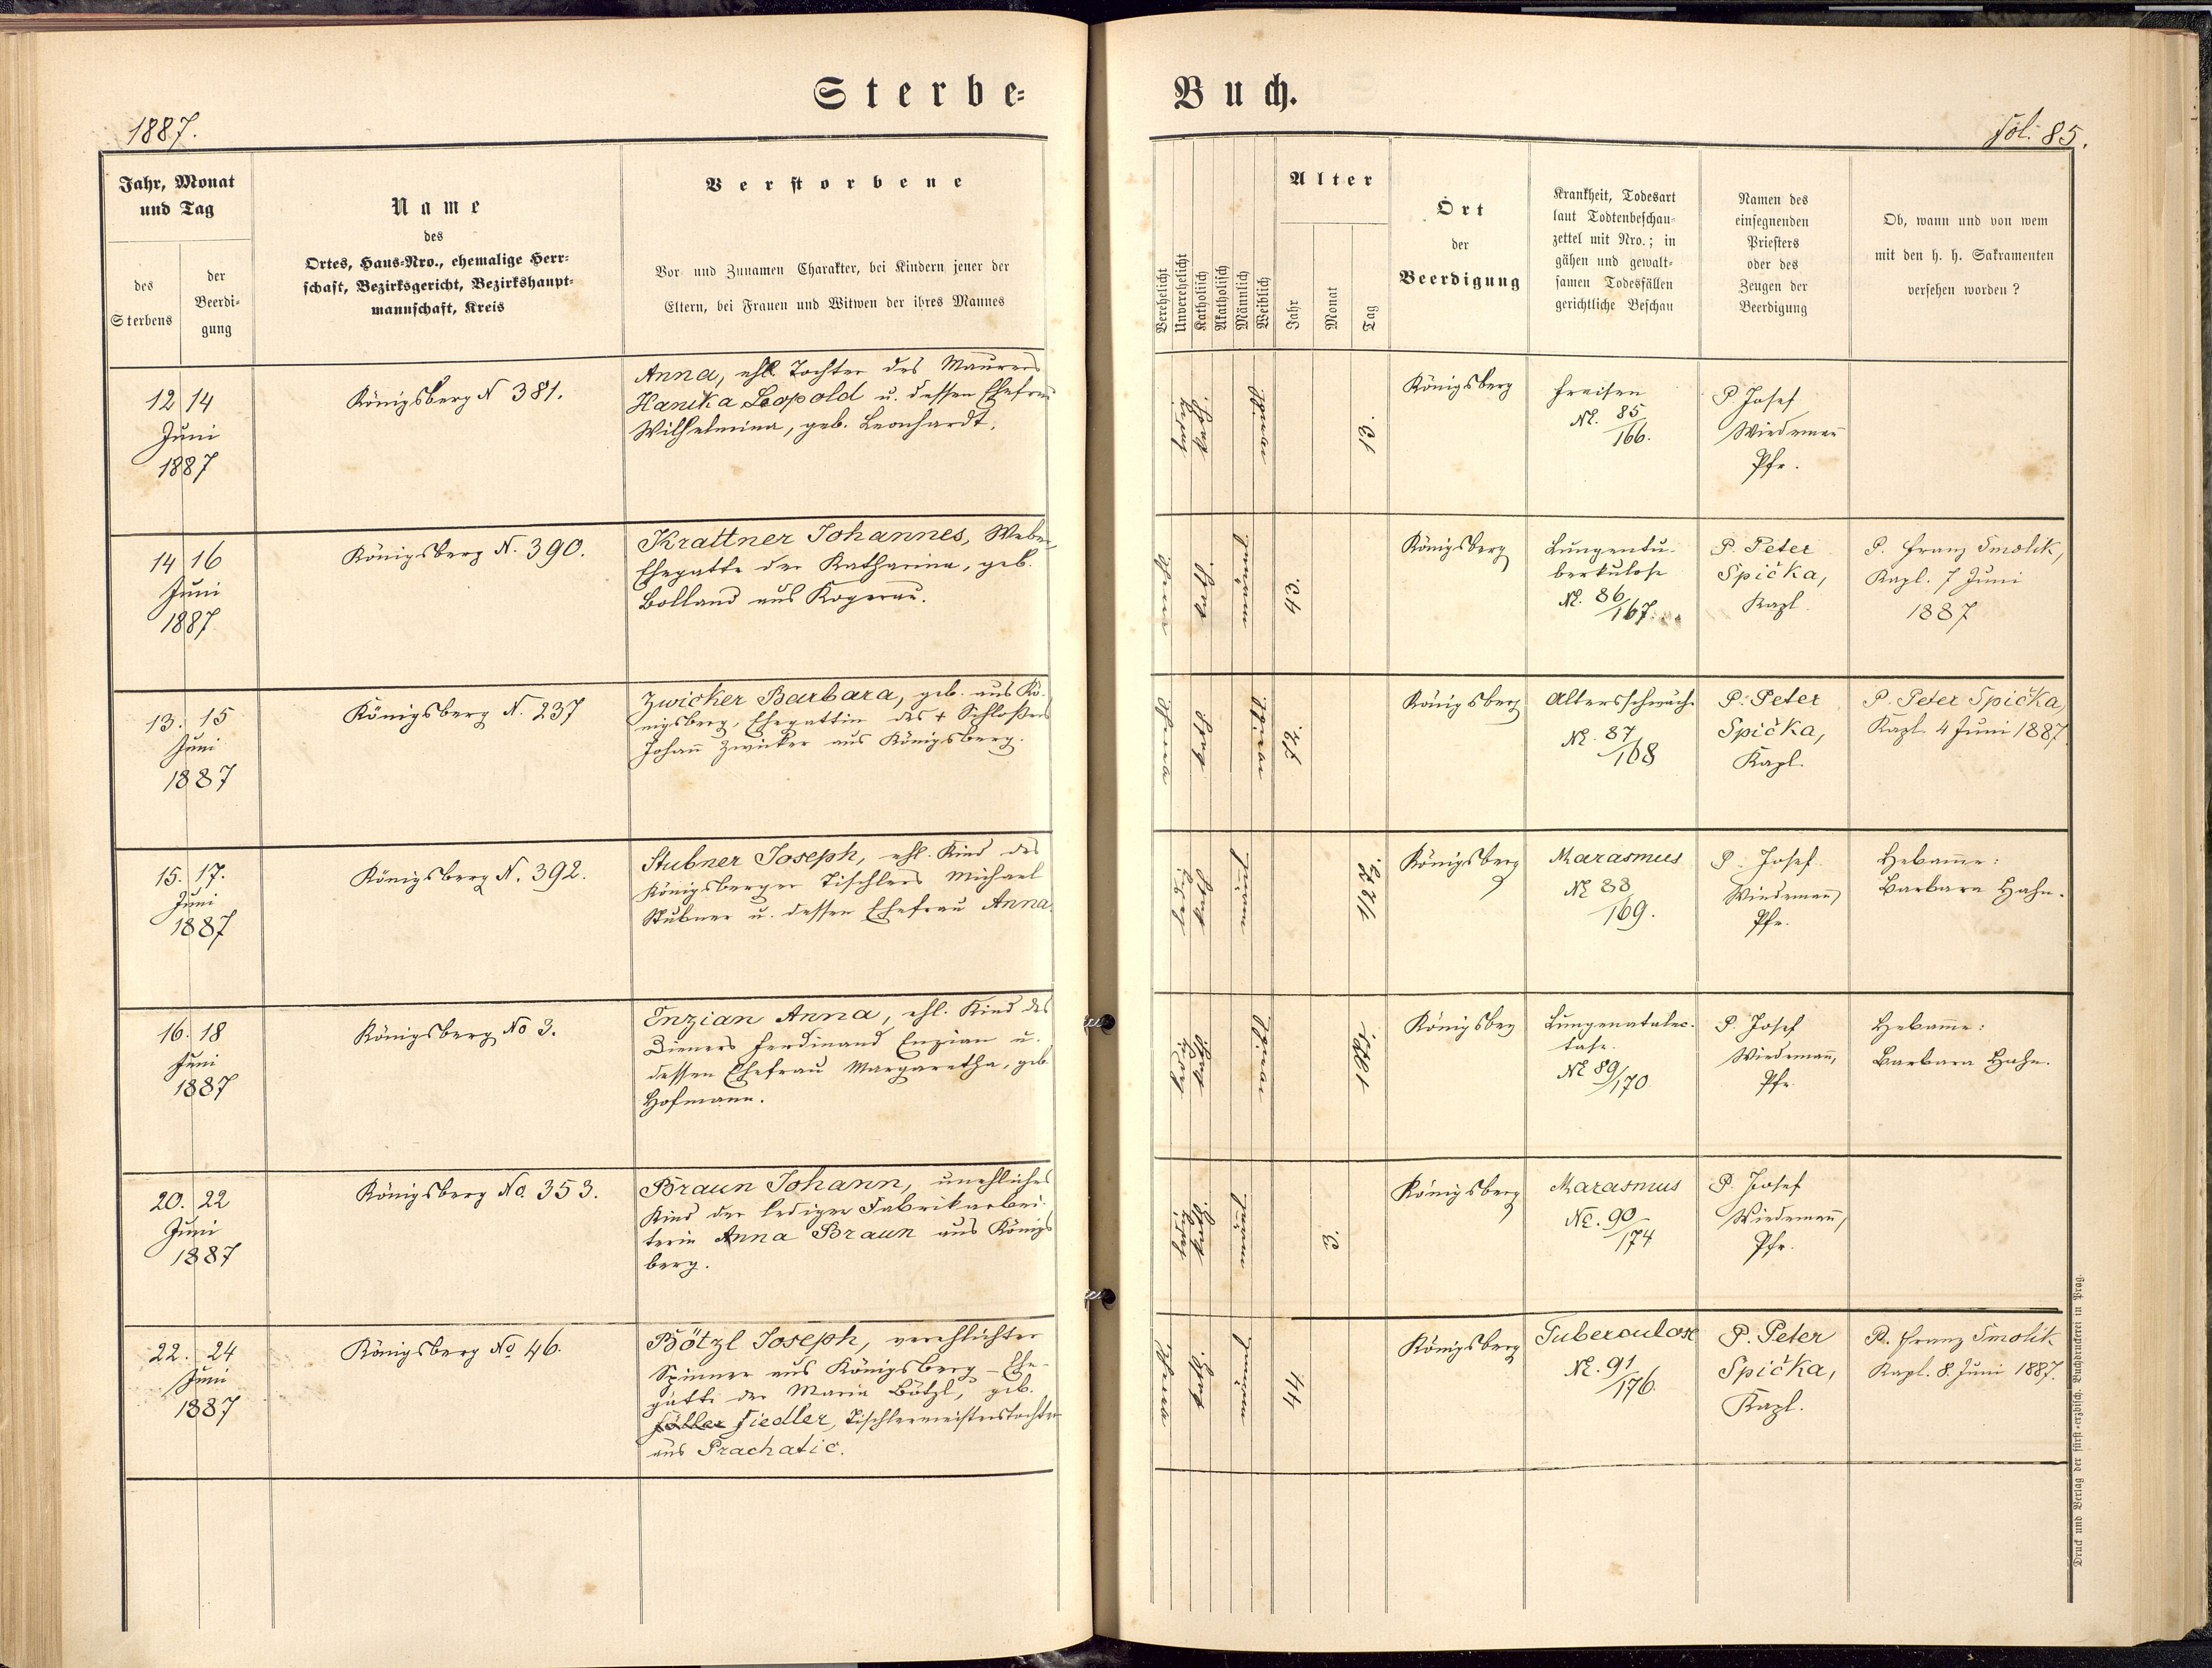 Sterbe-
Buch.
1887.
Fol: 85.
Jahr, Monat
und Tag
des
Sterbens
der
Beerdi-
gung
Name
des
Ortes, Haus-Nro., ehemalige Herr-
schaft, Bezirksgericht, Bezirkshaupt-
mannschaft, Kreis
Verstorbene
Vor- und Zunamen Charakter, bei Kindern jener der
Eltern, bei Frauen und Witwen der ihres Mannes
Verehelicht
Unverehelicht
Katholisch
Akatholisch
Männlich
Weiblich
Alter
Jahr
Monat
Tag
Ort
der
Beerdigung
Krankheit, Todesart
laut Todtenbeschau-
zettel mit Nro.; in
gähen und gewalt-
samen Todesfällen
gerichtliche Beschau
Namen des
einsegnenden
Priesters
oder des
Zeugen der
Beerdigung
Ob, wann und von wem
mit den h. h. Sakramenten
versehen worden?
12 14
Juni
1887
Königsberg N 381.
Anna, ehl. Tochter des Maurers
Hanika Leopold u. dessen Ehefrau
Wilhelmina, geb. Leonhardt.
13
Königsberg
Fraisen
No. 85/166.
P. Josef
Wiedemann
Pfr.
14 16
Juni
1887
Königsberg N. 390.
Krattner Johannes, Weber,
Ehegatte der Katharina, geb.
Bolland aus Kogerau.
43
Königsberg
Lungentu-
berkulose
No. 86/167.
P. Peter
Spička,
Kapl.
P. Franz Smolik,
Kapl. 7 Juni
1887
13. 15
Juni
1887
Königsberg N. 237
Zwicker Barbara, geb. aus Kö-
nigsberg, Ehegattin des + Schloßers
Johann Zwicker aus Königsberg.
Königsberg
Altersschwäche
No. 87/168
P. Peter
Spička,
Kapl.
P. Peter Spička,
Kapl. 4 Juni 1887
15. 17.
Juni
1887
Königsberg N. 392.
Stubner Joseph, ehl. Kind des
Königsberger Tischlers Michael
Stubner u. dessen Ehefrau Anna
Königsberg
Marasmus
No 88/169.
P. Josef
Wiedemann,
Pfr.
Hebamme:
Barbara Hahn.
16. 18
Juni
1887
Königsberg No 3.
Enzian Anna, ehl. Kind des
Dieners Ferdinand Enzian u.
dessen Ehefrau Margaretha, geb.
Hofmann.
Königsberg
Lungenatelec-
tase.
No 89/170
P. Josef
Wiedemann,
Pfr.
Hebamme:
Barbara Hahn.
20. 22
Juni
1887
Königsberg No. 353.
Braun Johann, unehliches
Kind der ledigen Fabrikarbei-
terin Anna Braun aus Königs
berg.
3.
Königsberg
Marasmus
No. 90/174
P. Josef
Wiedemann,
Pfr.
22. 24
Juni
1887
Königsberg No 46.
Bötzl Joseph, verehlichter
Spinner aus Königsberg – Ehe-
gatte der Maria Bötzl, geb.
Fiedler, Tischlermeisterstochter
aus Prachatic.
44
Königsberg
Tuberculose
No. 91/176.
P. Peter
Spička,
Kapl.
P. Franz Smolik
Kapl. 8. Juni 1887.
Druck und Verlag der fürst-erzbisch. Buchdruckerei in Prag.